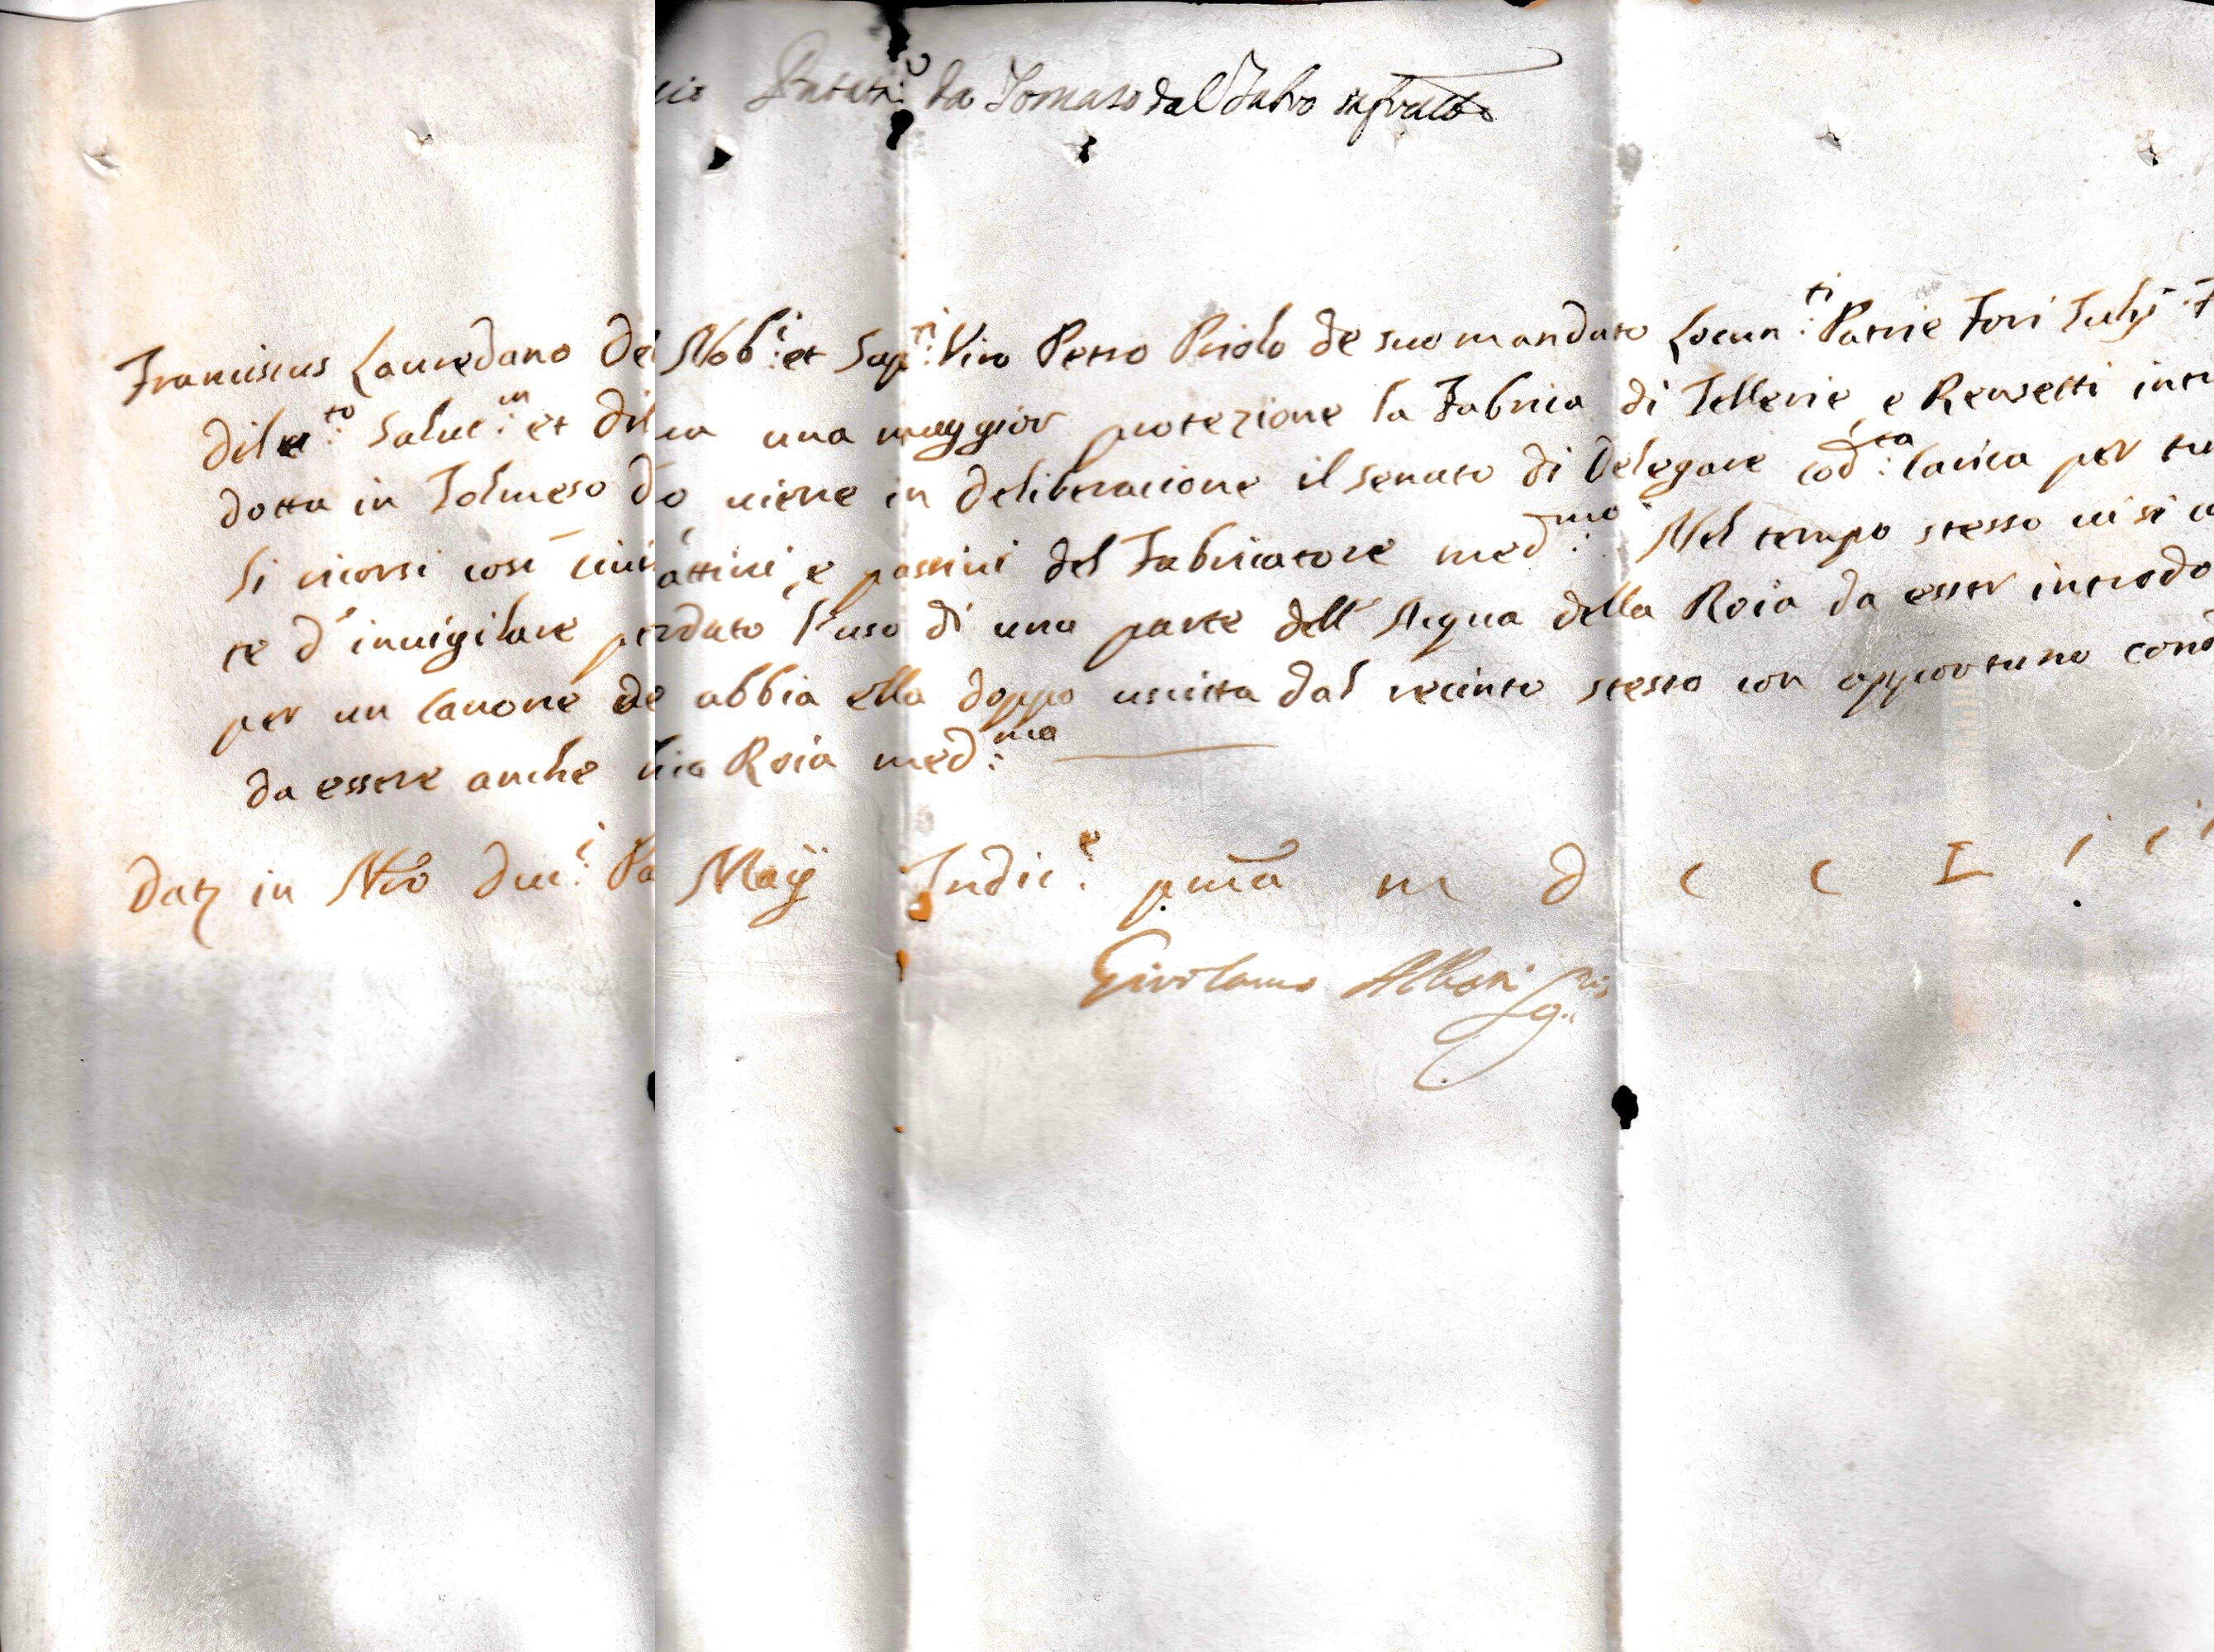 da Tomaso dal Fabro
Franciscus Lauredano De Nob:i et Sap:ti Viro Petro Priolo de suo mandato Locun:ti Patrie Fori Julÿ F
dile:to Salut:m et dil una maggior protezione la Fabrica di Tellerie e Revesetti intr
dotta in Tolmeso do viene in deliberacione il senato di Delegare cod:sta carica per tu
li ricorsi così civi attivi, e passivi del Fabricatore med:mo Nel tempo stesso vi si
te d'invigilare perduto l'uso di una parte dell'Acqua della Roia da esser introdo
per un canone de abbia ella doppo uscitta dal recinto stesso con opportuno cond
da essere anche Roia med:ma
Dat in Nro Duc:i Pa Maÿ Indic:e pma m d c c L i i i
Girolamo Alberti Seg:rio